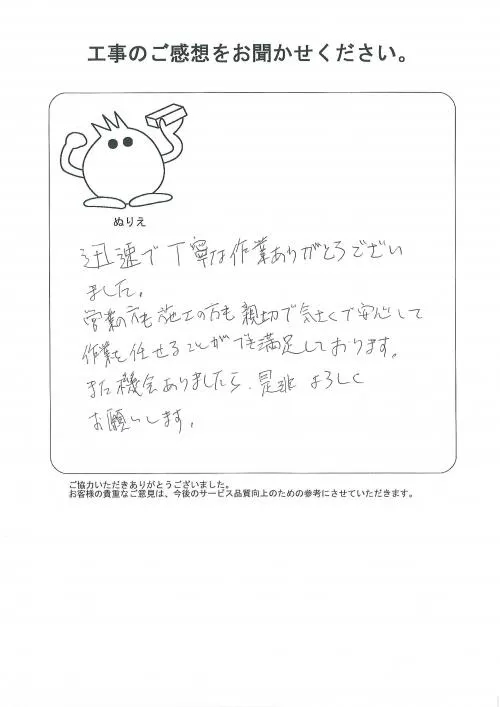 工事のご感想をお聞かせください。
ぬりえ
迅速で丁寧な作業ありがとうござい
ました。
営業の方も施工の方も親切で気さくで安心して
作業を任せることができ満足しております。
また機会ありましたら、是非よろしく
お願いします。
ご協力いただきありがとうございました。
お客様の貴重なご意見は、今後のサービス品質向上のための参考にさせていただきます。